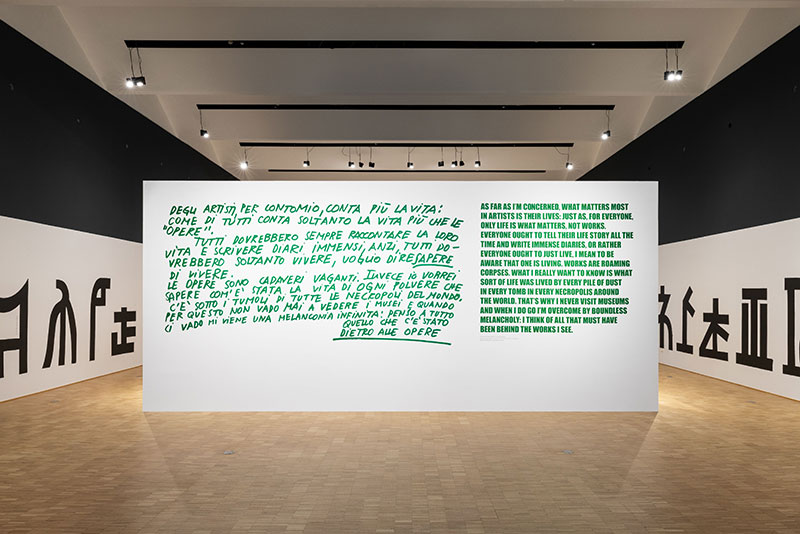 DEGLI ARTISTI, PER CONTO MIO, CONTA PIÙ LA VITA:
COME DI TUTTI CONTA SOLTANTO LA VITA PIÙ CHE LE
"OPERE".
TUTTI DOVREBBERO SEMPRE RACCONTARE LA LORO
VITA E SCRIVERE DIARI IMMENSI, ANZI, TUTTI DO-
VREBBERO SOLTANTO VIVERE, VOGLIO DIRE SAPERE
DI VIVERE.
LE OPERE SONO CADAVERI VAGANTI. INVECE IO VORREI
SAPERE COM'È STATA LA VITA DI OGNI POLVERE CHE
C'È SOTTO I TUMOLI DI TUTTE LE NECROPOLI DEL MONDO.
PER QUESTO NON VADO MAI A VEDERE I MUSEI E QUANDO
CI VADO MI VIENE UNA MELANCONIA INFINITA: PENSO A TUTTO
QUELLO CHE C'È STATO
DIETRO ALLE OPERE
AS FAR AS I'M CONCERNED, WHAT MATTERS MOST
IN ARTISTS IS THEIR LIVES: JUST AS, FOR EVERYONE,
ONLY LIFE IS WHAT MATTERS, NOT WORKS.
EVERYONE OUGHT TO TELL THEIR LIFE STORY ALL THE
TIME AND WRITE IMMENSE DIARIES. OR RATHER
EVERYONE OUGHT TO JUST LIVE, I MEAN TO BE
AWARE THAT ONE IS LIVING. WORKS ARE ROAMING
CORPSES. WHAT I REALLY WANT TO KNOW IS WHAT
SORT OF LIFE WAS LIVED BY EVERY PILE OF DUST
IN EVERY TOMB IN EVERY NECROPOLIS AROUND
THE WORLD. THAT'S WHY I NEVER VISIT MUSEUMS
AND WHEN I DO GO I'M OVERCOME BY BOUNDLESS
MELANCHOLY: I THINK OF ALL THAT MUST HAVE
BEEN BEHIND THE WORKS I SEE.